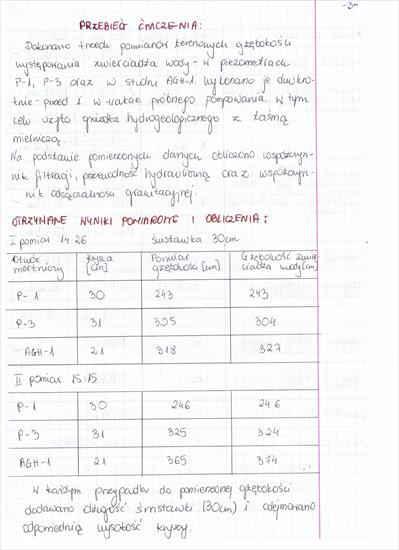 -3-
PRZEBIEG ĆWICZENIA:
Dokonano trzech pomiarów terenowych głębokości
występowania zwierciadła wody - w piezometrach
P-1, P-3 oraz w studni AGH-1. Wykonano je dwukro-
tnie - przed i w trakcie próbnego pompowania. W tym
celu użyto gwizdka hydrogeologicznego z taśmą
mierniczą.
Na podstawie pomierzonych danych obliczono współczyn-
nik filtracji, przewodność hydrauliczną oraz współczyn-
nik odsączalności grawitacyjnej.
OTRZYMANE WYNIKI POMIAROWE I OBLICZENIA:
I pomiar 14 26 świstawka 30cm
Otwór wiertniczy | kryza [cm] | Pomiar głębokości [cm] | Głębokość zwier- ciadła wody [cm]
P-1 30 243 243
P-3 31 305 304
AGH-1 21 318 327
II pomiar 15:15
P-1 30 246 246
P-3 31 325 324
AGH-1 21 365 374
W każdym przypadku do pomierzonej głębokości
dodawano długość świstawki (30cm) i odejmowano
odpowiednią wysokość kryzy.